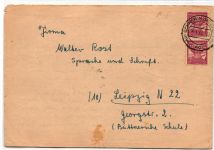 Firma
Walter Rost
Sprache und Schrift.
(10) Leipzig N 22
Georgstr. 2.
(Büttnersche Schule)